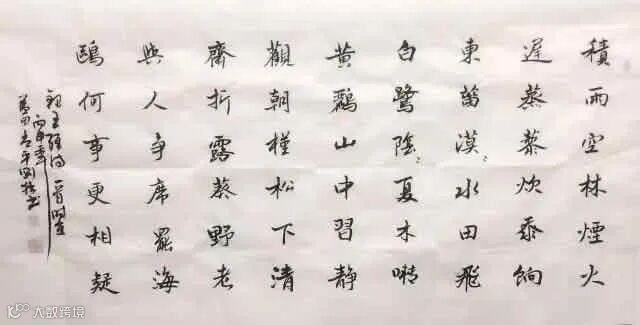 積雨空林煙火
遲蒸藜炊黍餉
東菑漠〻水田飛
白鷺陰〻夏木囀
黃鸝山中習靜
觀朝槿松下清
齋折露葵野老
與人爭席罷海
鷗何事更相疑
王維詩一首
丙申年
大数跨境